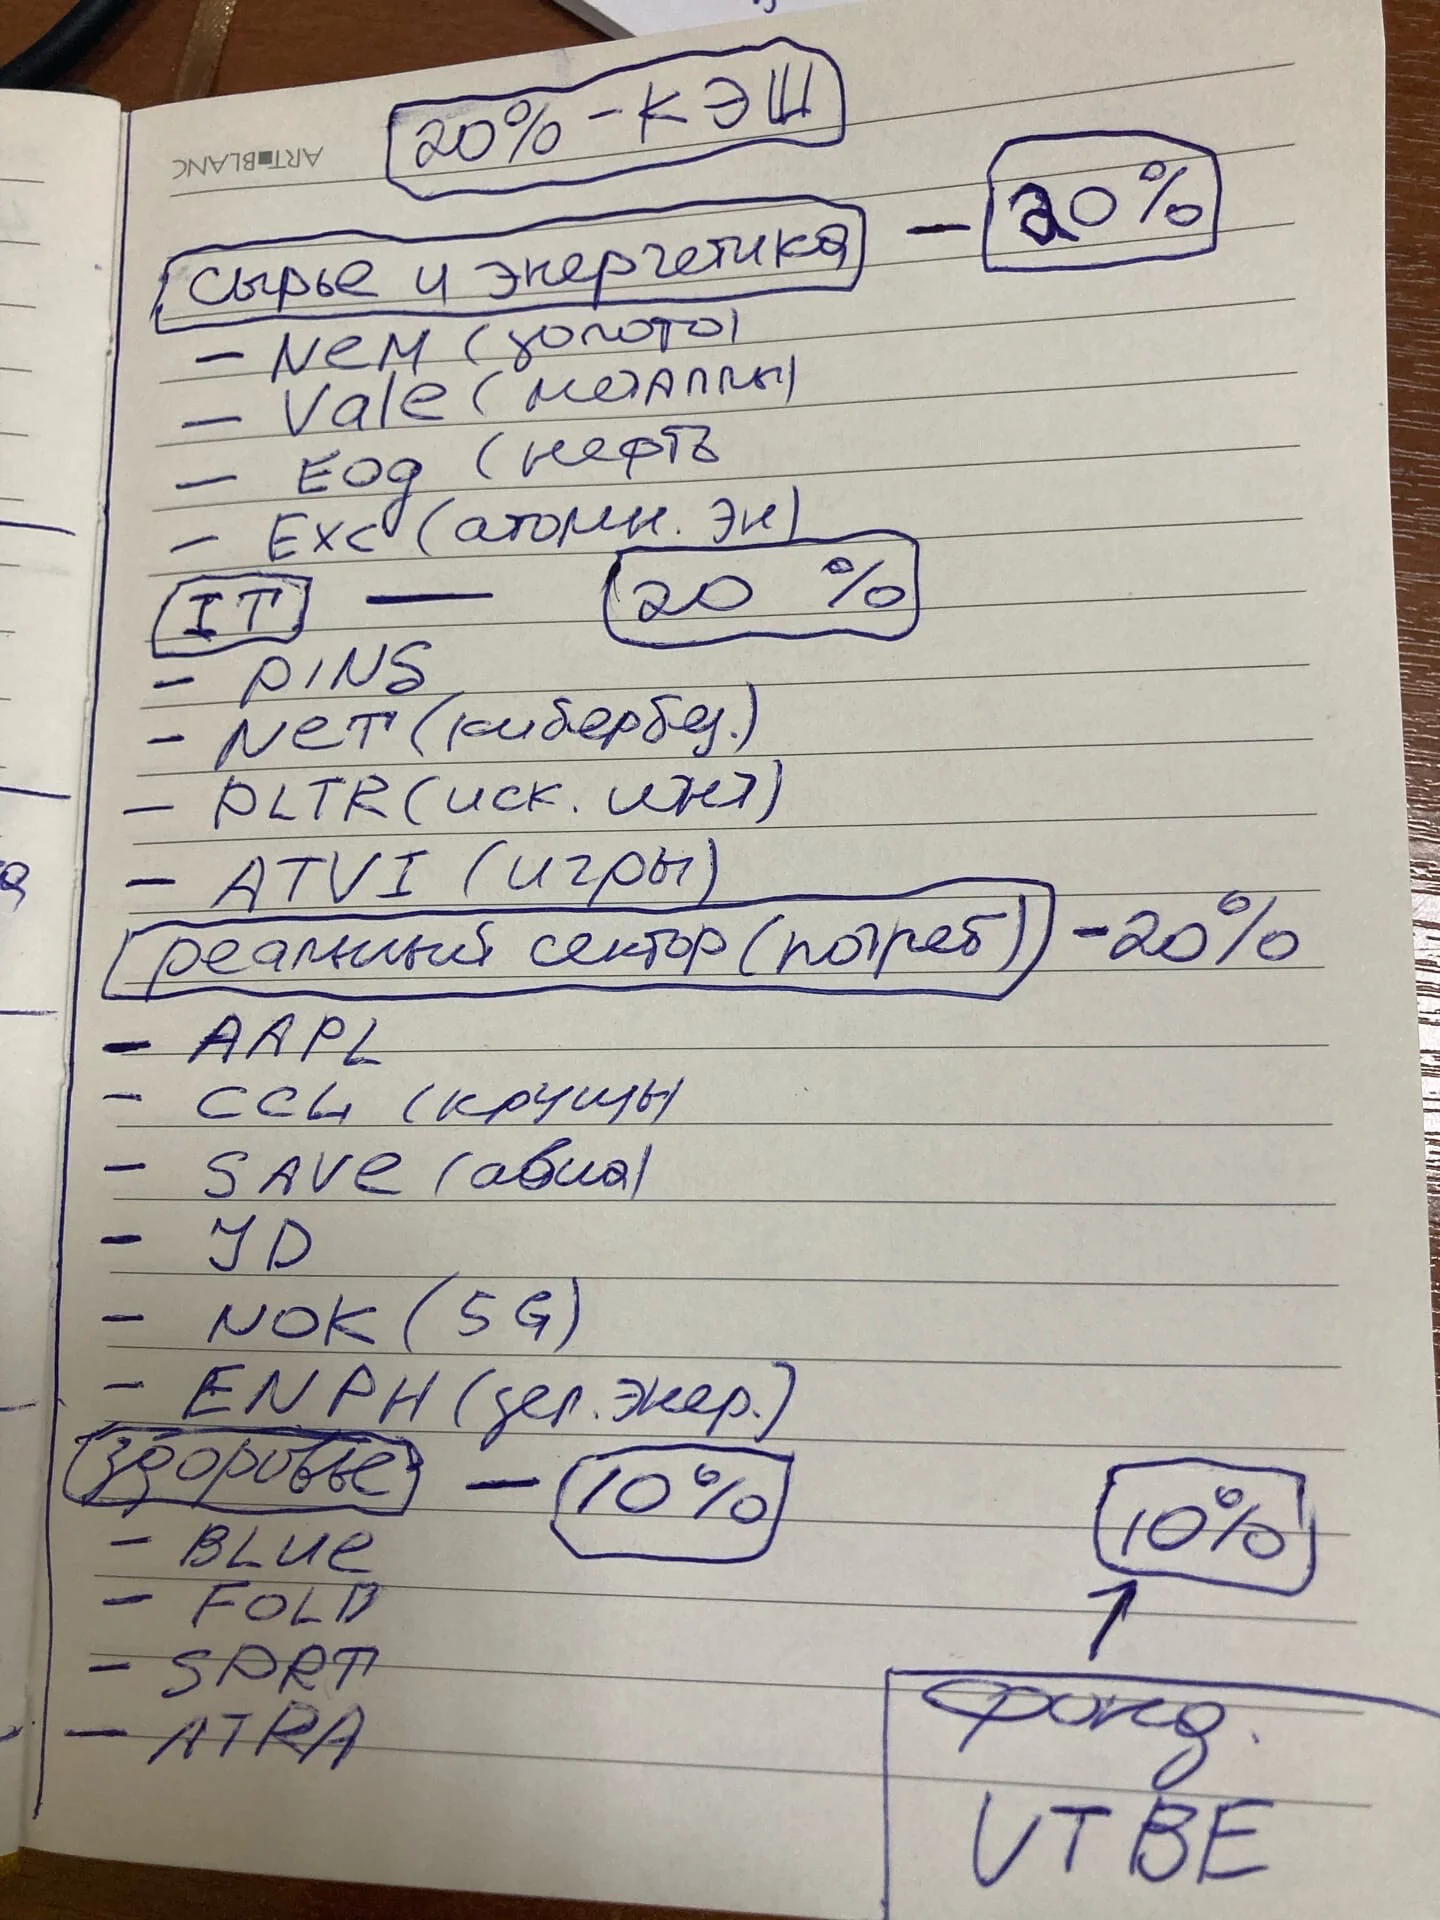 20% - КЭШ
ART BLANC
сырье и энергетика - 20%
- NeM (золото)
- Vale (металлы)
- EOg (нефть
- EXC (атомн. эн)
IT — 20 %
- PINS
- NeT (кибербез.)
- PLTR (иск. инт)
- ATVI (игры)
реальный сектор (потреб) - 20%
- AAPL
- CCL (круизы
- SAVe (авиа)
- JD
- NOK (5G)
- ENPH (зел. энер.)
здоровье - 10%
- BLUe
- FOLD
- SPRT
- ATRA
10%
фонд.
VTBE